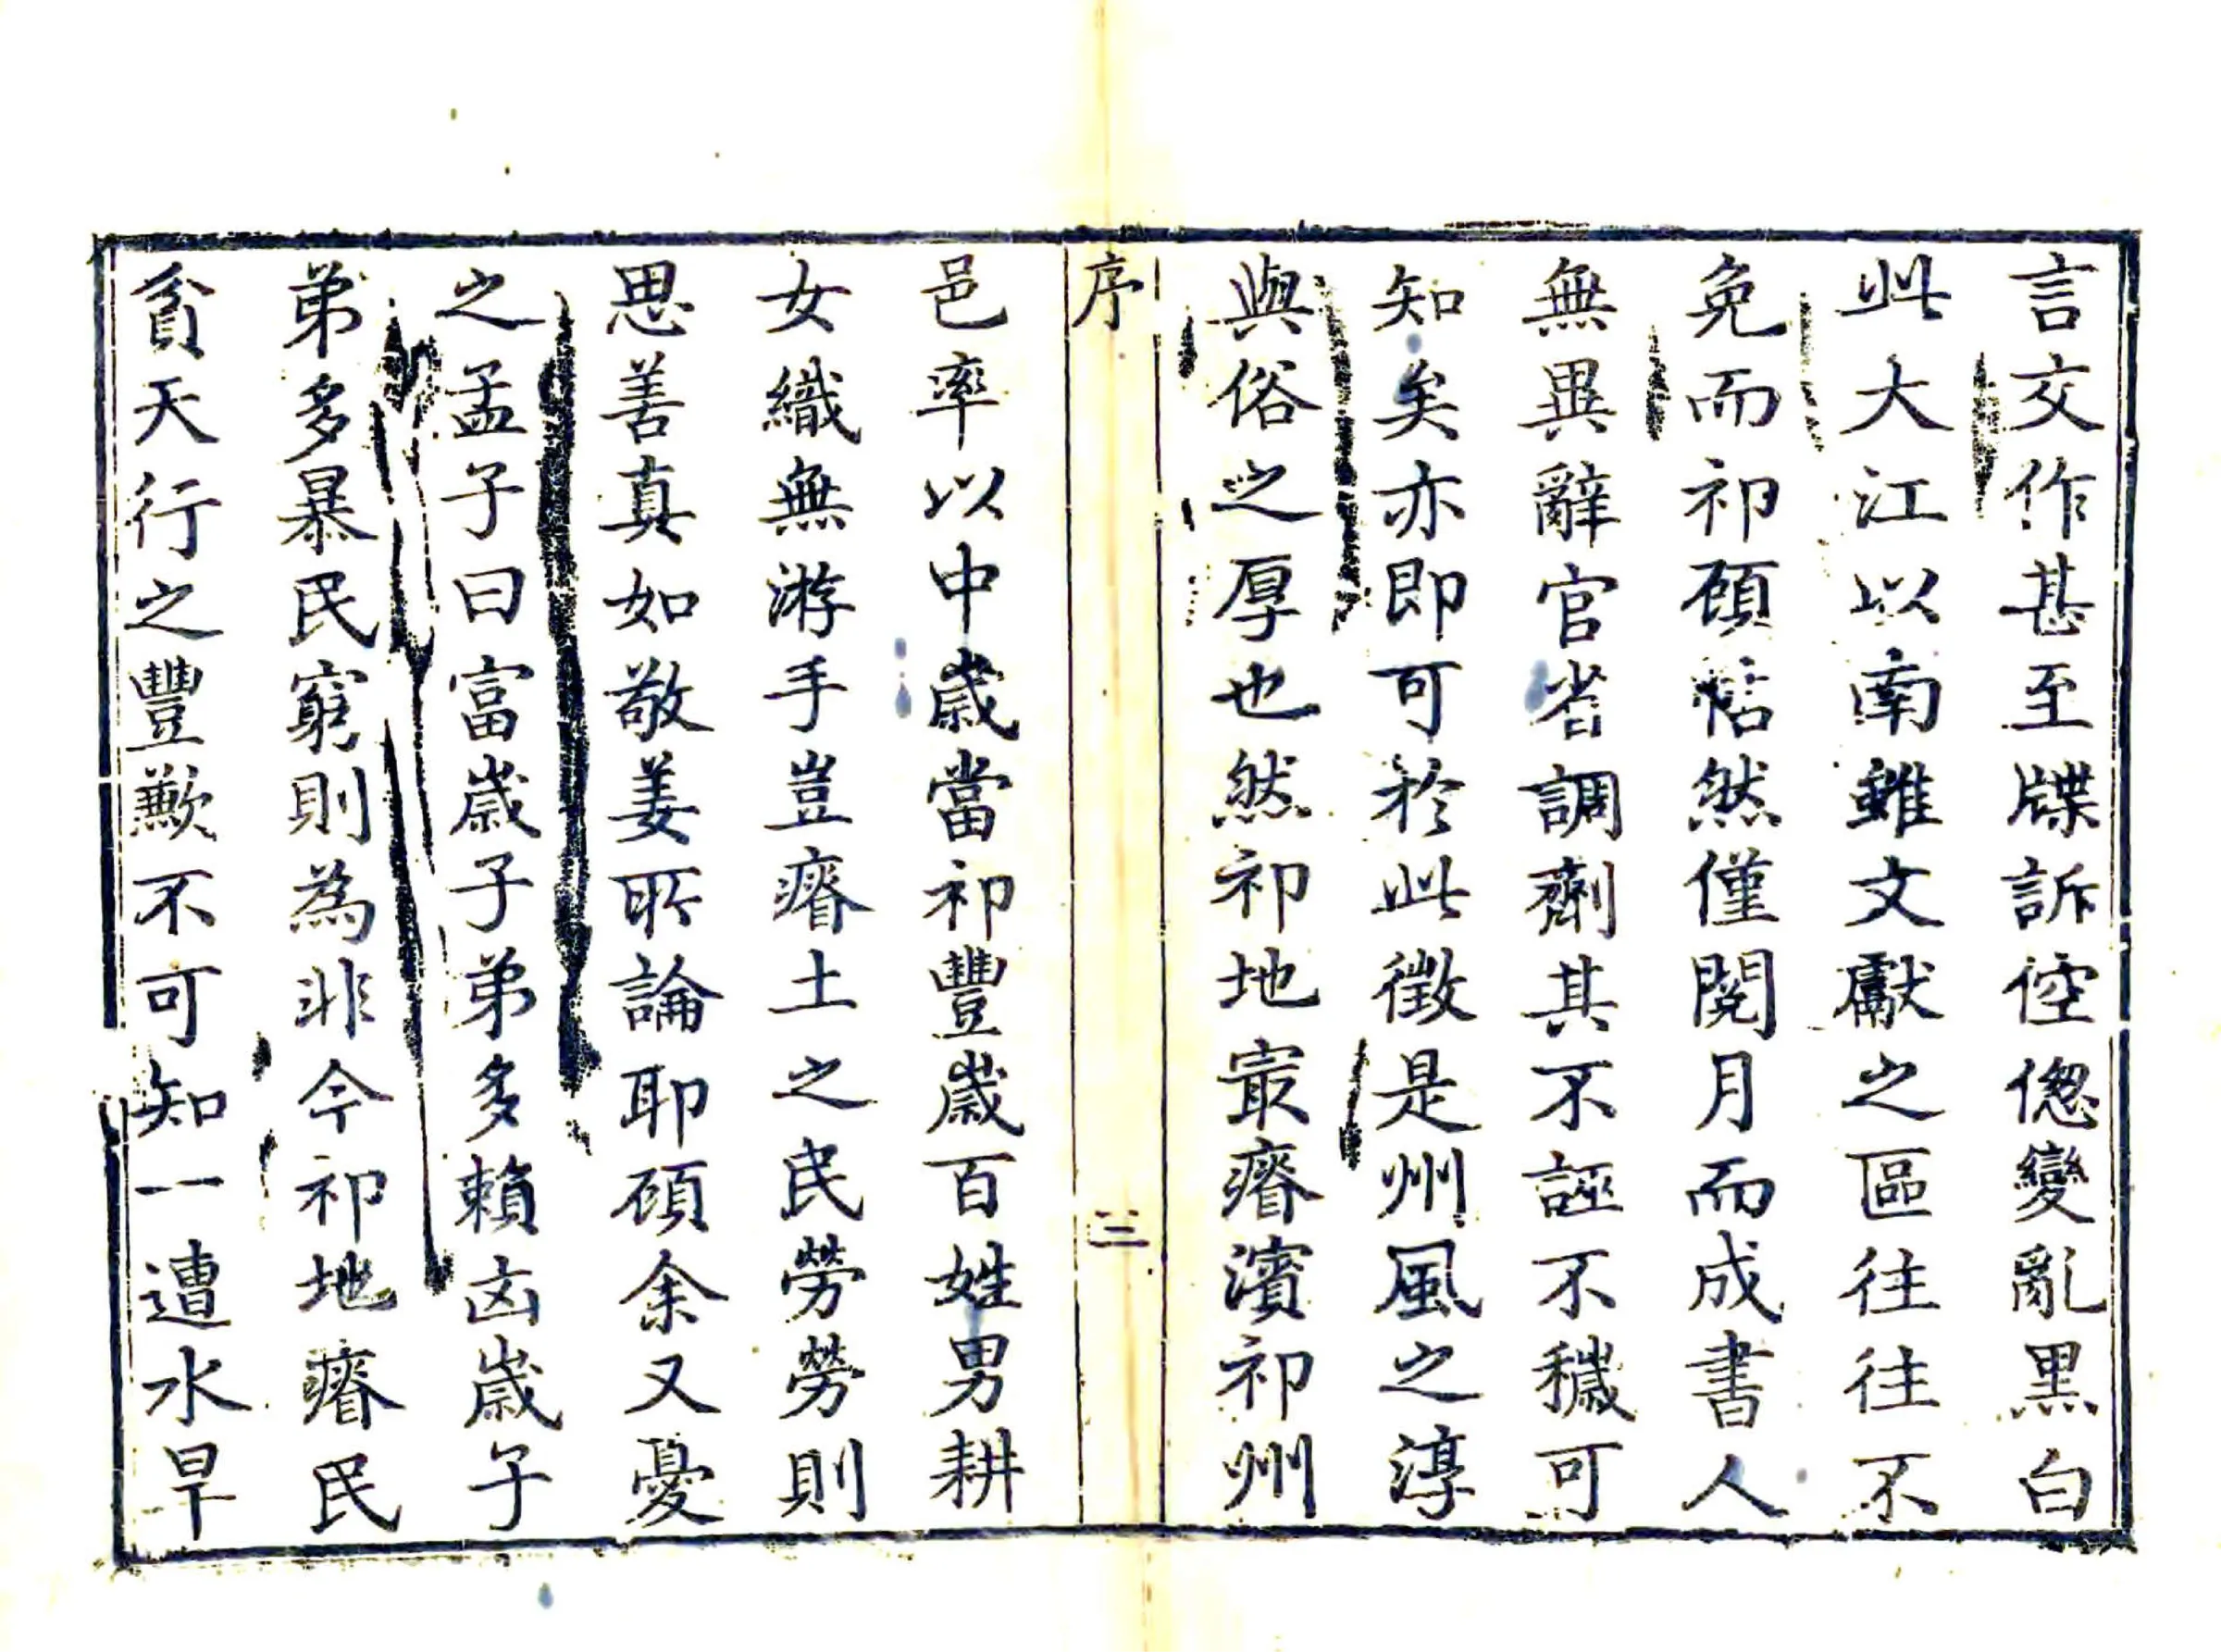 言交作甚至牒訴倥偬變亂黑白
此大江以南雖文獻之區往往不
免而祁頋恬然僅閱月而成書人
無異辭官省調劑其不誣不穢可
知矣亦即可於此徵是州風之淳
與俗之厚也然祁地㝡瘠濱祁州
序
三
邑率以中歲當祁豐歲百姓男耕
女織無游手豈瘠土之民勞勞則
思善真如敬姜所論耶頋余又憂
之孟子曰富歲子弟多賴凶歲子
弟多暴民窮則為非今祁地瘠民
貧天行之豐歉不可知一遭水旱